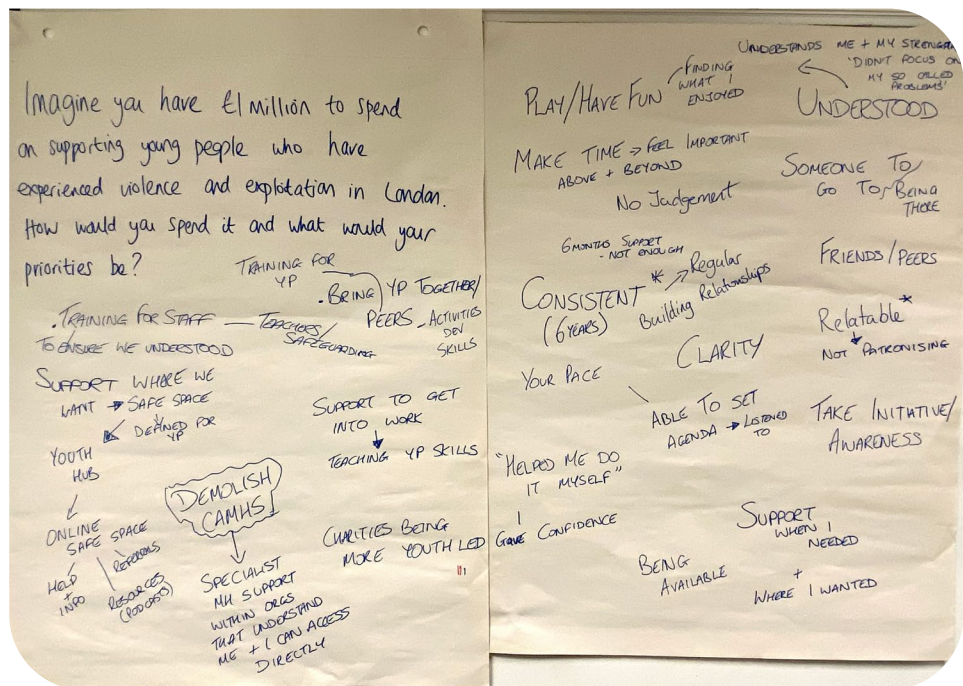 Imagine you have £1 million to spend
on supporting young people who have
experienced violence and exploitation in London.
How would you spend it and what would your
priorities be?
TRAINING FOR
YP
. BRING YP TOGETHER/
PEERS - ACTIVITIES
DEV
SKILLS
. TRAINING FOR STAFF — TEACHERS/
SAFEGUARDING
TO ENSURE WE UNDERSTOOD
SUPPORT WHERE WE
WANT → SAFE SPACE
DEFINED FOR
YP
YOUTH
HUB
ONLINE
SAFE SPACE
REFERRALS
HELP
+
INFO
RESOURCES
(PODCASTS)
SUPPORT TO GET
INTO WORK
TEACHING YP SKILLS
DEMOLISH
CAMHS
SPECIALIST
MH SUPPORT
WITHIN ORGS
THAT UNDERSTAND
ME + I CAN ACCESS
DIRECTLY
CHARITIES BEING
MORE YOUTH LED
UNDERSTANDS ME + MY STRENGTH
'DIDN'T FOCUS ON
MY SO CALLED
PROBLEMS'
UNDERSTOOD
PLAY/HAVE FUN
FINDING
WHAT I
ENJOYED
MAKE TIME → FEEL IMPORTANT
ABOVE + BEYOND
No Judgement
SOMEONE TO
GO TO/BEING
THERE
6 MONTHS SUPPORT
- NOT ENOUGH
CONSISTENT * → Regular
(6 YEARS)
Building Relationships
FRIENDS/PEERS
Relatable *
NOT PATRONISING
CLARITY
YOUR PACE
ABLE TO SET
AGENDA → LISTENED
TO
TAKE INITIATIVE/
AWARENESS
"HELPED ME DO
IT MYSELF"
Gave CONFIDENCE
SUPPORT
WHEN I
NEEDED
+
WHERE I WANTED
BEING
AVAILABLE